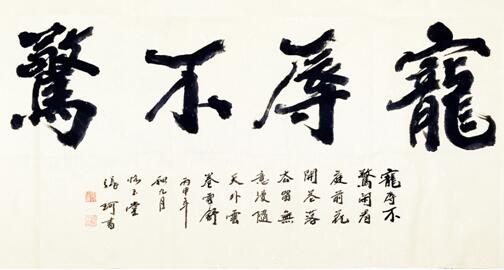 寵辱不驚
寵辱不
驚閑看
庭前花
開花落
去留無
意漫隨
天外雲
卷雲舒
丙申年
秋九月
玉堂
張珂書